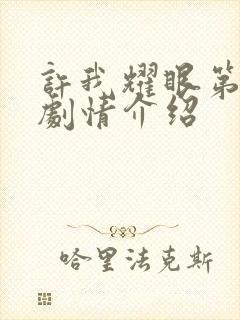 許我耀眼第
劇情介紹
哈里法克斯